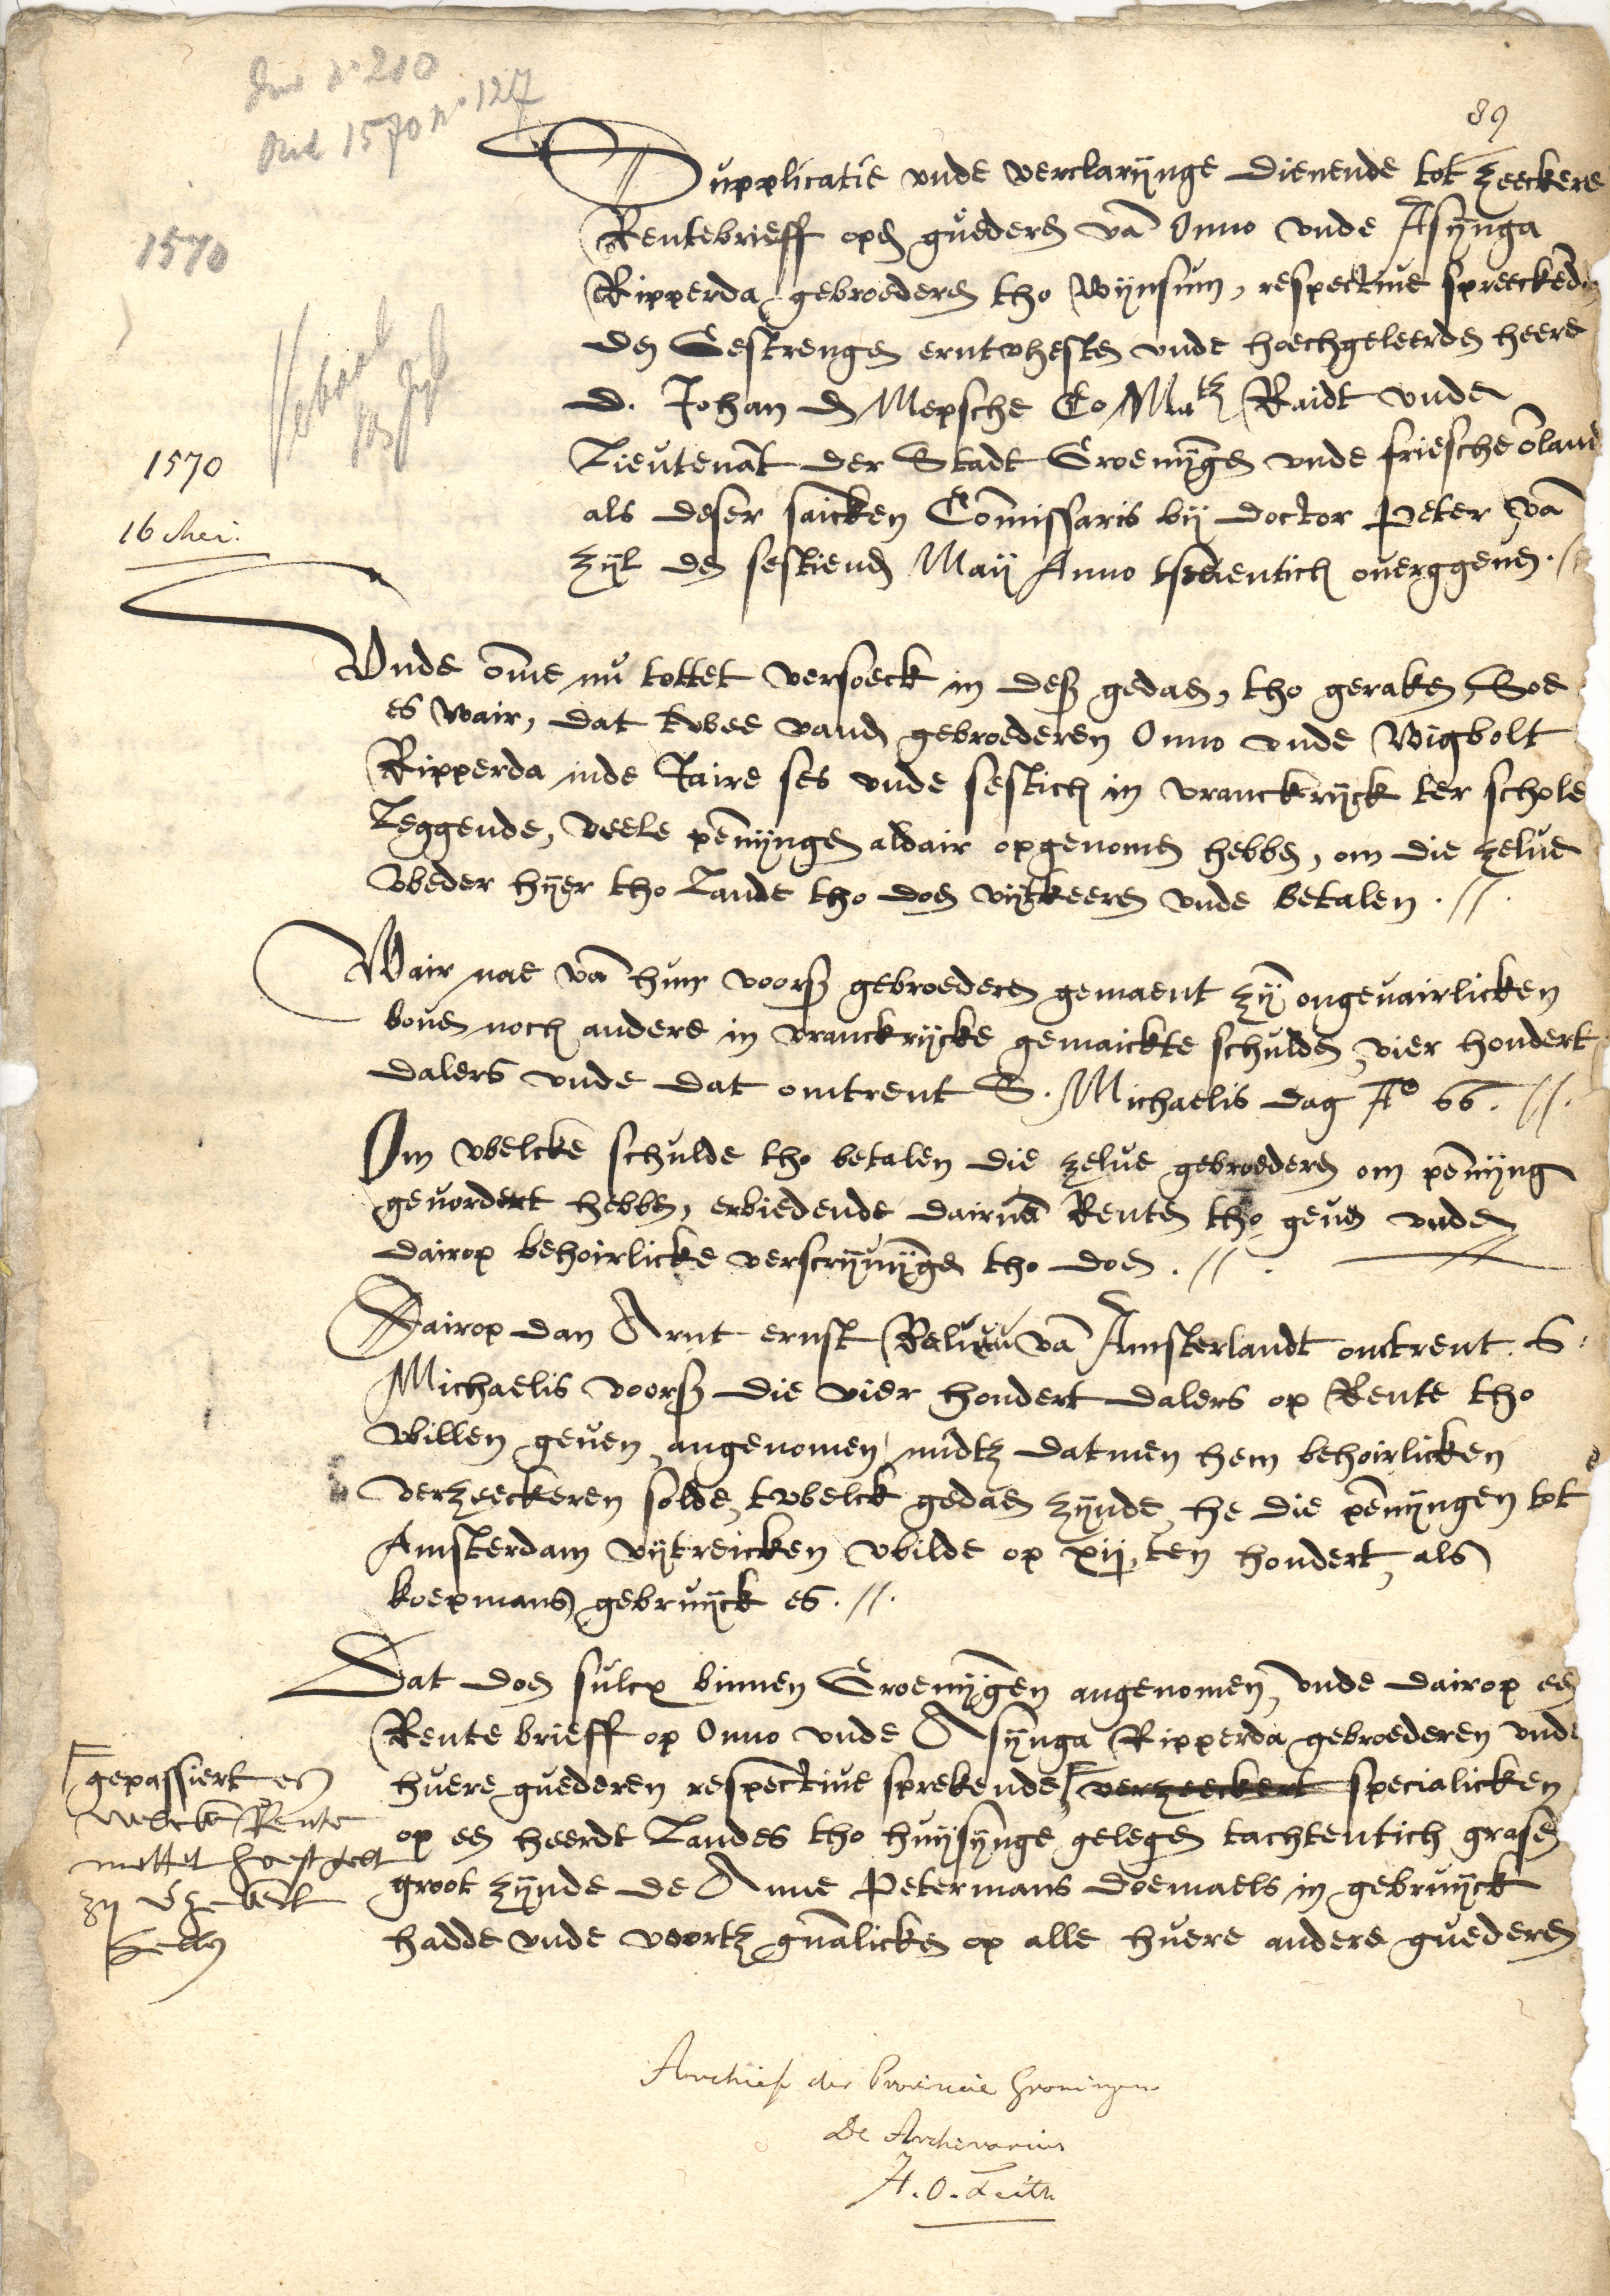 Inv n° 210
Ord 1570 n° 127
89
1570
Supplicatie vnde verclarijnge dienende tot zeeckere
Rentebrieff opd guederen vā Onno vnde Asijnga
Ripperda gebroederen tho Wijnsum, respectiue spreeckend
den Gestrengen erntvhesten vnde hoechgeleerden heere
D. Johan de Mepsche Co Matz Raidt vnde
Lieutenāt der Stadt Groenijngen vnde friesche ōland
1570
als deser saicken Commissaris bij doctor Peter vā
16 Mei.
Zijl den sestiend Maij Anno tseuentich ouerggeuen. //
Vnde ōme nu tottet versoeck in desz gedaen, tho geraken, Soe
es wair, dat twee vand gebroederen Onno vnde Wigbolt
Ripperda inde Jaire ses vnde sestich in vranckrijck ter schole
Leggende, veele pennijngen aldair opgenomen hebben, om die zelue
weder hijer tho Lande tho doen vijtkeeren vnde betalen. //.
Wair nae vā hun voorsz gebroederen gemaent zij ongeuairlicken
bouen noch andere in vranckrijcke gemaickte schulden, vier hondert
dalers vnde dat omtrent S. Michaelis dag A° 66. //.
Om welcke schulde tho betalen die zelue gebroederen om pennijng
geuordert hebben, erbiedende dairuā Renten tho geuen vnde
dairop behoirlicke verscrijuijngen tho doen. //.
Dairop dan Arnt ernst vā Amsterlandt omtrent S.
Michaelis voorsz die vier hondert dalers op Rente tho
willen geuen, angenomen midtz datmen hem behoirlicken
verzeeckeren solde, twelck gedaen zijnde, he die pennijngen tot
Amsterdam vijtreicken wilde op xij ten hondert, als
koepmans gebruijck es. //.
Dat doen sulcx binnen Groenijngen angenomen, vnde dairop een
Rente brieff op Onno vnde Asijnga Ripperda gebroederen vnde
huere guederen respectiue sprekende, verzeeckert specialicken
gepassiert
welcke Rente
mettet
op een heerdt Landes tho huijsijnge gelegen tachtentich grasen
groot zijnde de Anne Petermans doemaels in gebruijck
hadde vnde voortz gnālicken op alle huere andere guederen
Archief der Provincie Groningen
De Archivarius
H. O. Feith